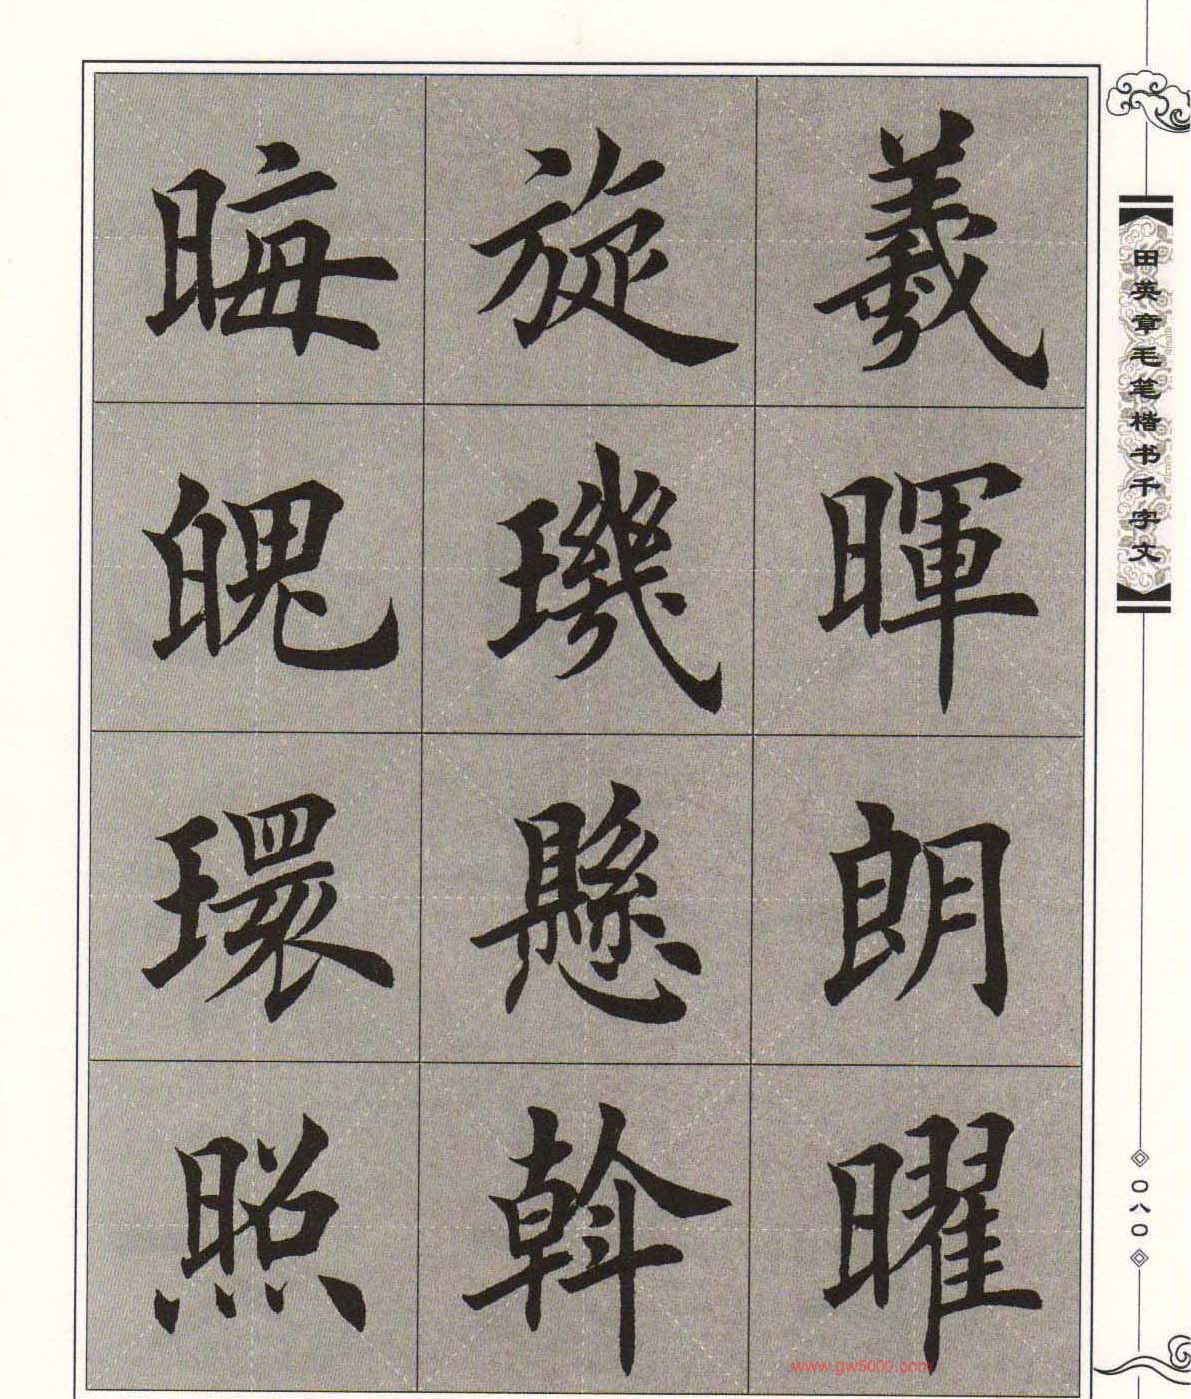 羲暉朗曜
旋璣懸斡
晦魄環照
田英章毛笔楷书千字文
〇八〇
www.gw5000.com